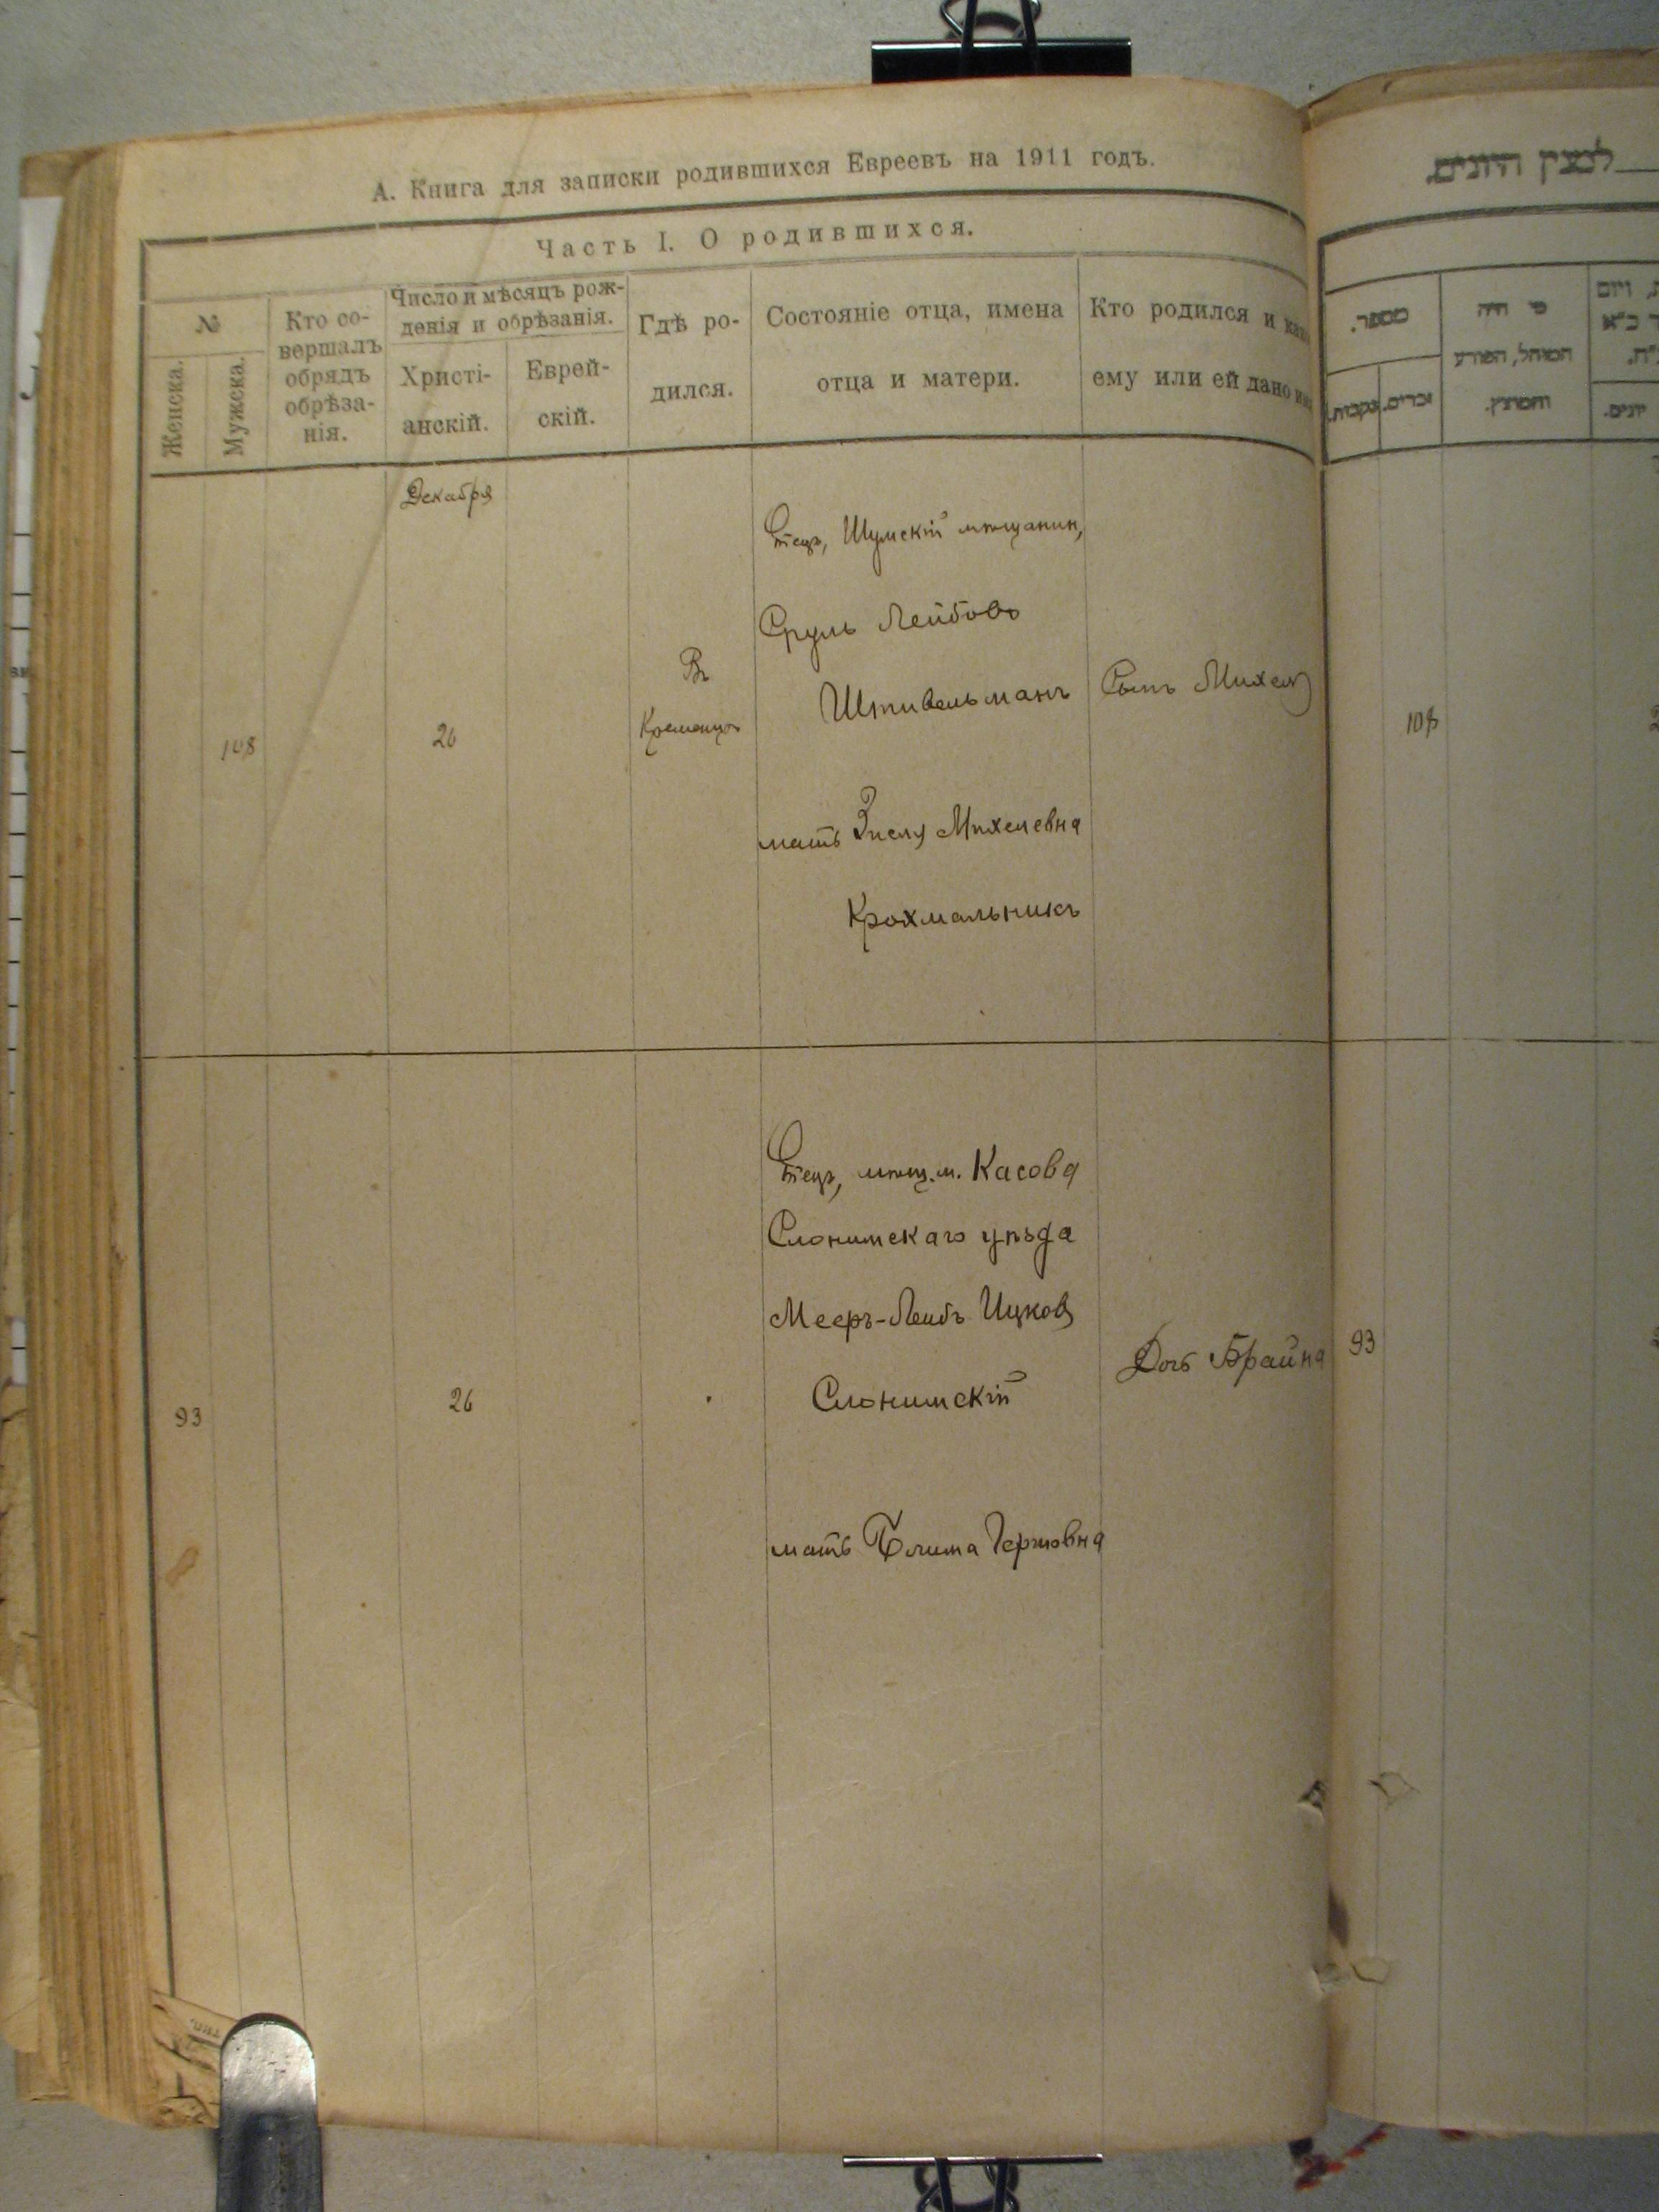 А. Книга для записки родившихся Евреевъ на 1911 годъ.
Часть I. О родившихся.
№
Женска.
Мужска.
Кто со-
вершалъ
обрядъ
обрѣза-
нія.
Число и мѣсяцъ рож-
денія и обрѣзанія.
Христі-
анскій.
Еврей-
скій.
Гдѣ ро-
дился.
Состояніе отца, имена
отца и матери.
Кто родился и
ему или ей дано
Декабря
108
26
Въ
Кременцѣ
Отецъ, Шумскій мѣщанин,
Сруль Лейбовъ
Штивельманъ
мать Зисля Михелевна
Крохмальникъ
Сынъ Михель
93
26
Отецъ, мѣщ. м. Касова
Слонимскаго уѣзда
Мееръ-Лейбъ Ицков
Слонимскій
мать Блима Гершовна
Дочь Брайна
מספר.
נקבות.
זכרים.
מי היה
המוהל, הפורע
והמוצץ.
108
93